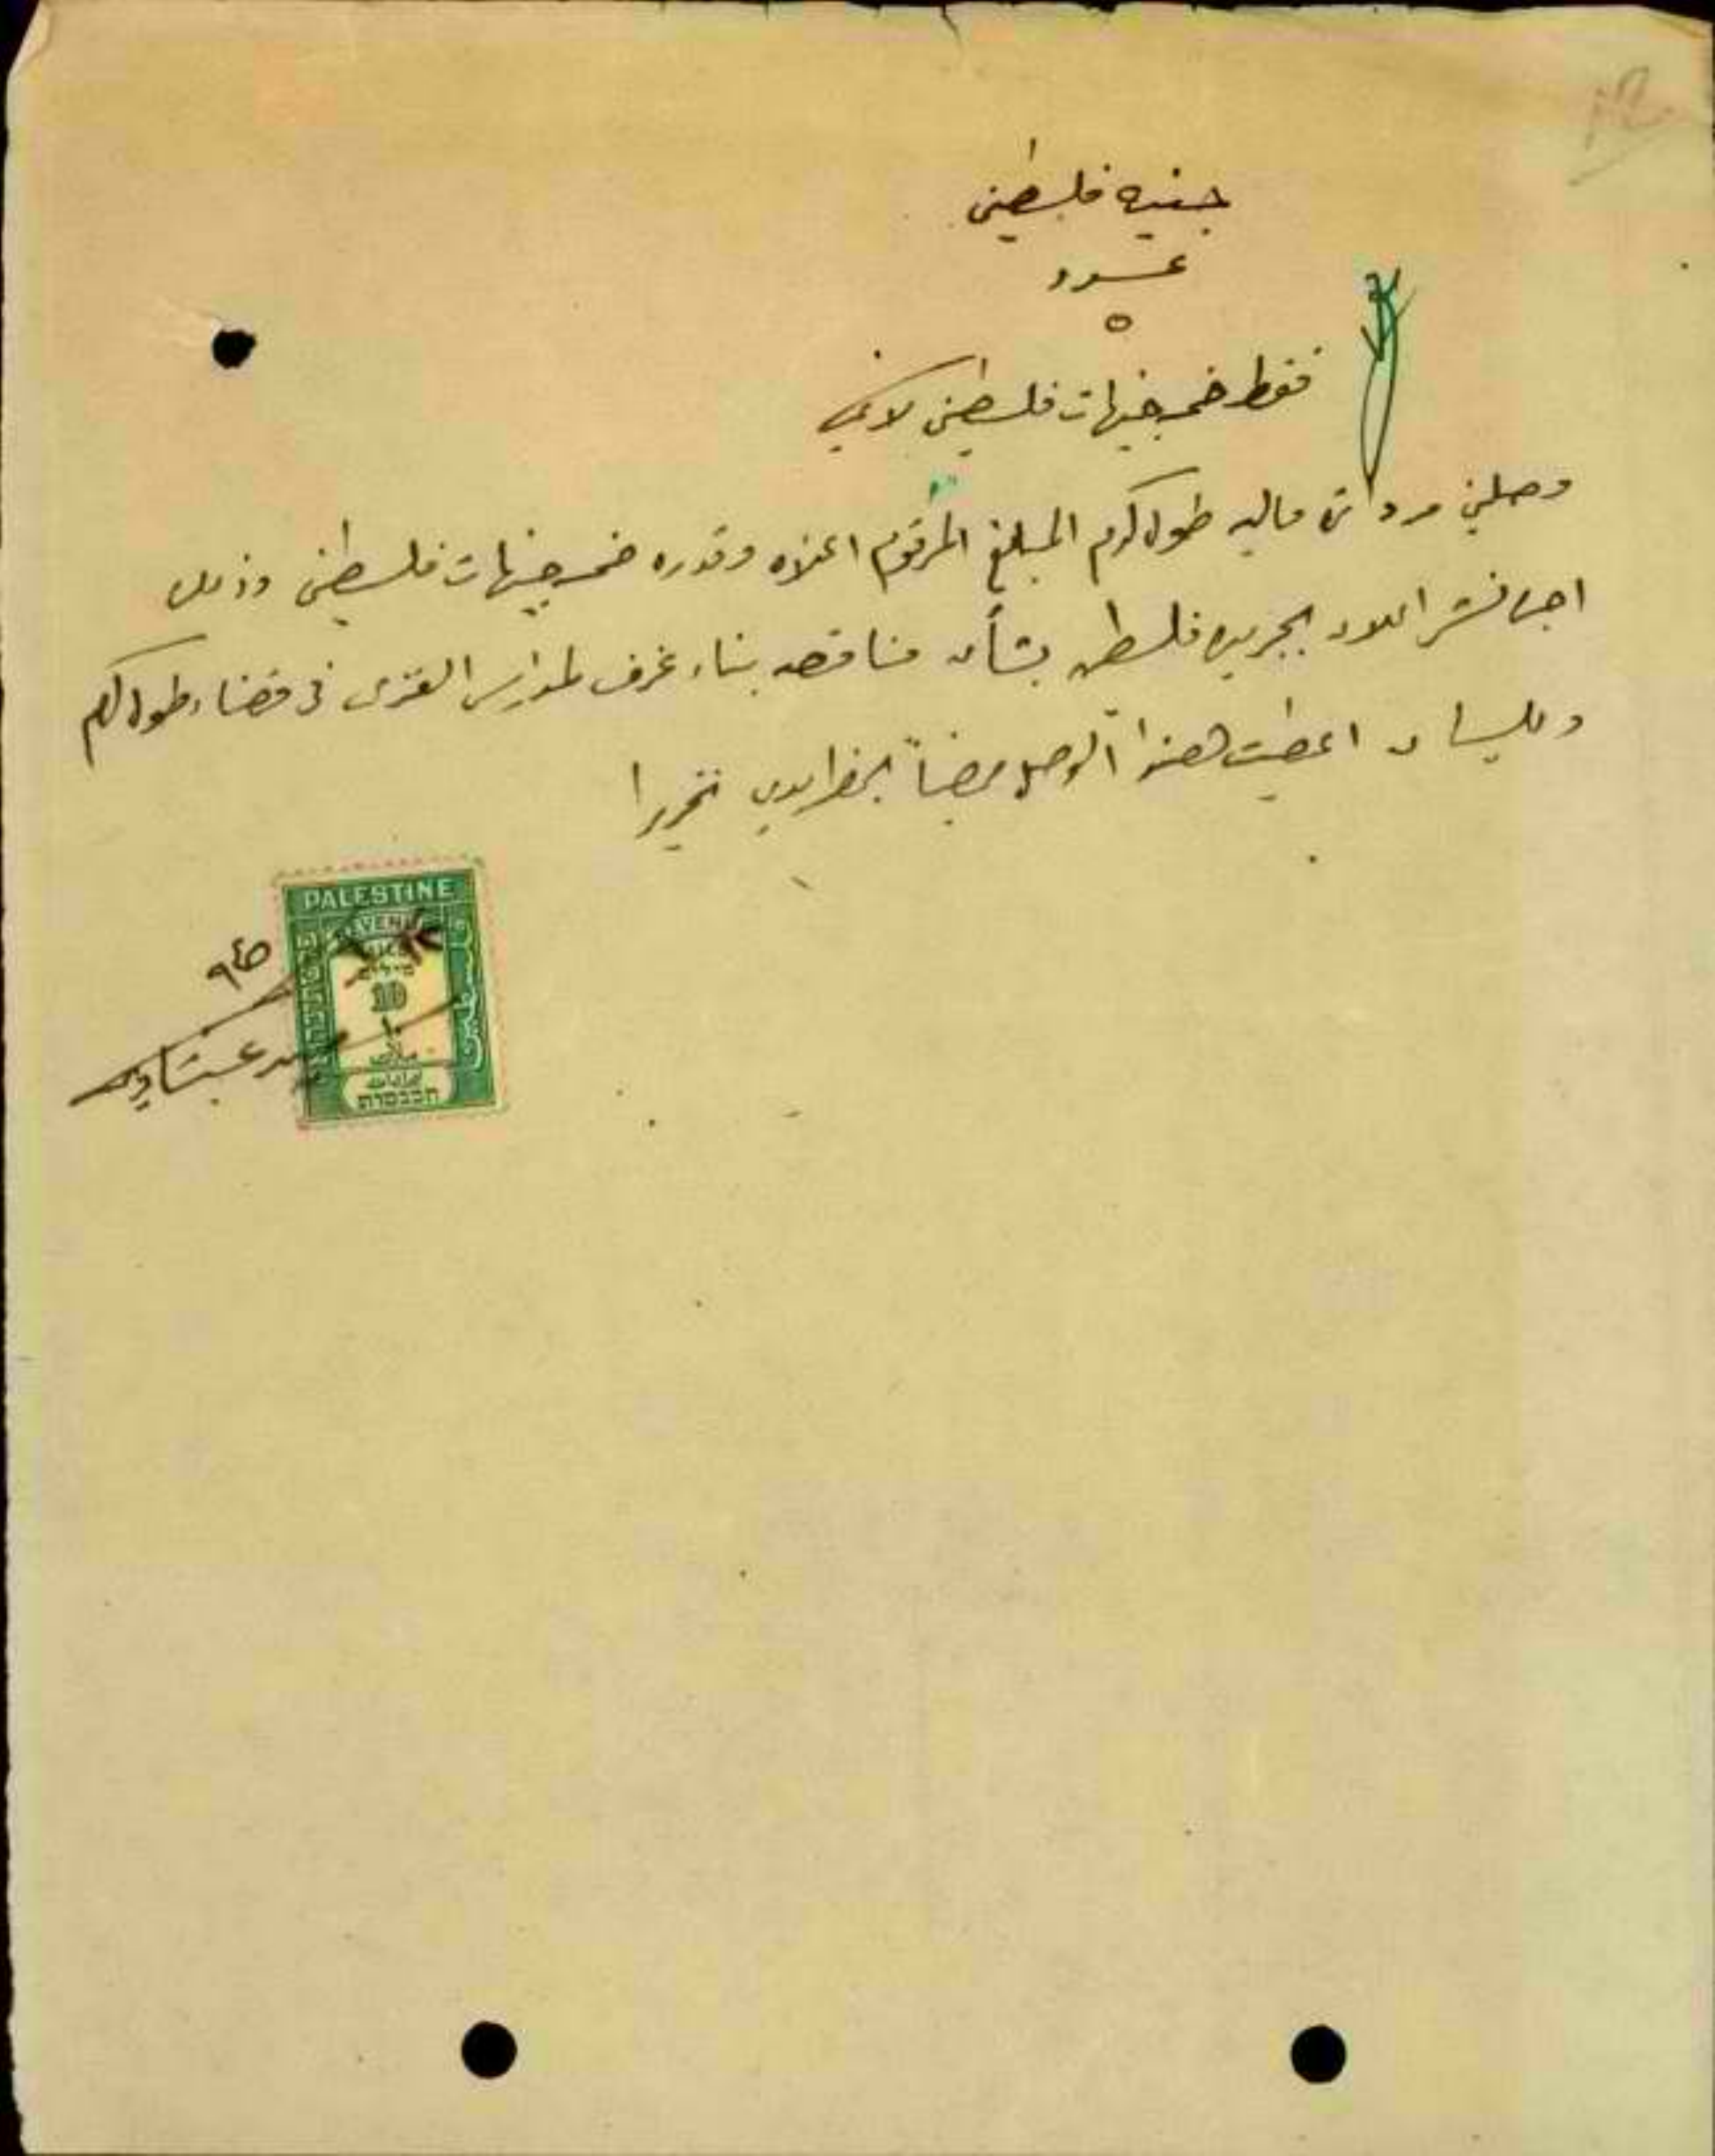 جنيه فلسطيني
عدد
٥
فقط خمس جنيهات فلسطيني لاغير
وصلني من دائرة مالية طولكرم المبلغ المرقوم اعلاه وقدره خمس جنيهات فلسطيني وذلك
اجرة نشر اعلان بجريدة فلسطين بشأن مناقصة بناء غرف لمدارس القرى في قضاء طولكرم
وللبيان اعطيت هذا الوصل ممضياً بخط يدي تحريرا
٩٤٥
PALESTINE
REVENUE
10
١٠
فلسطين